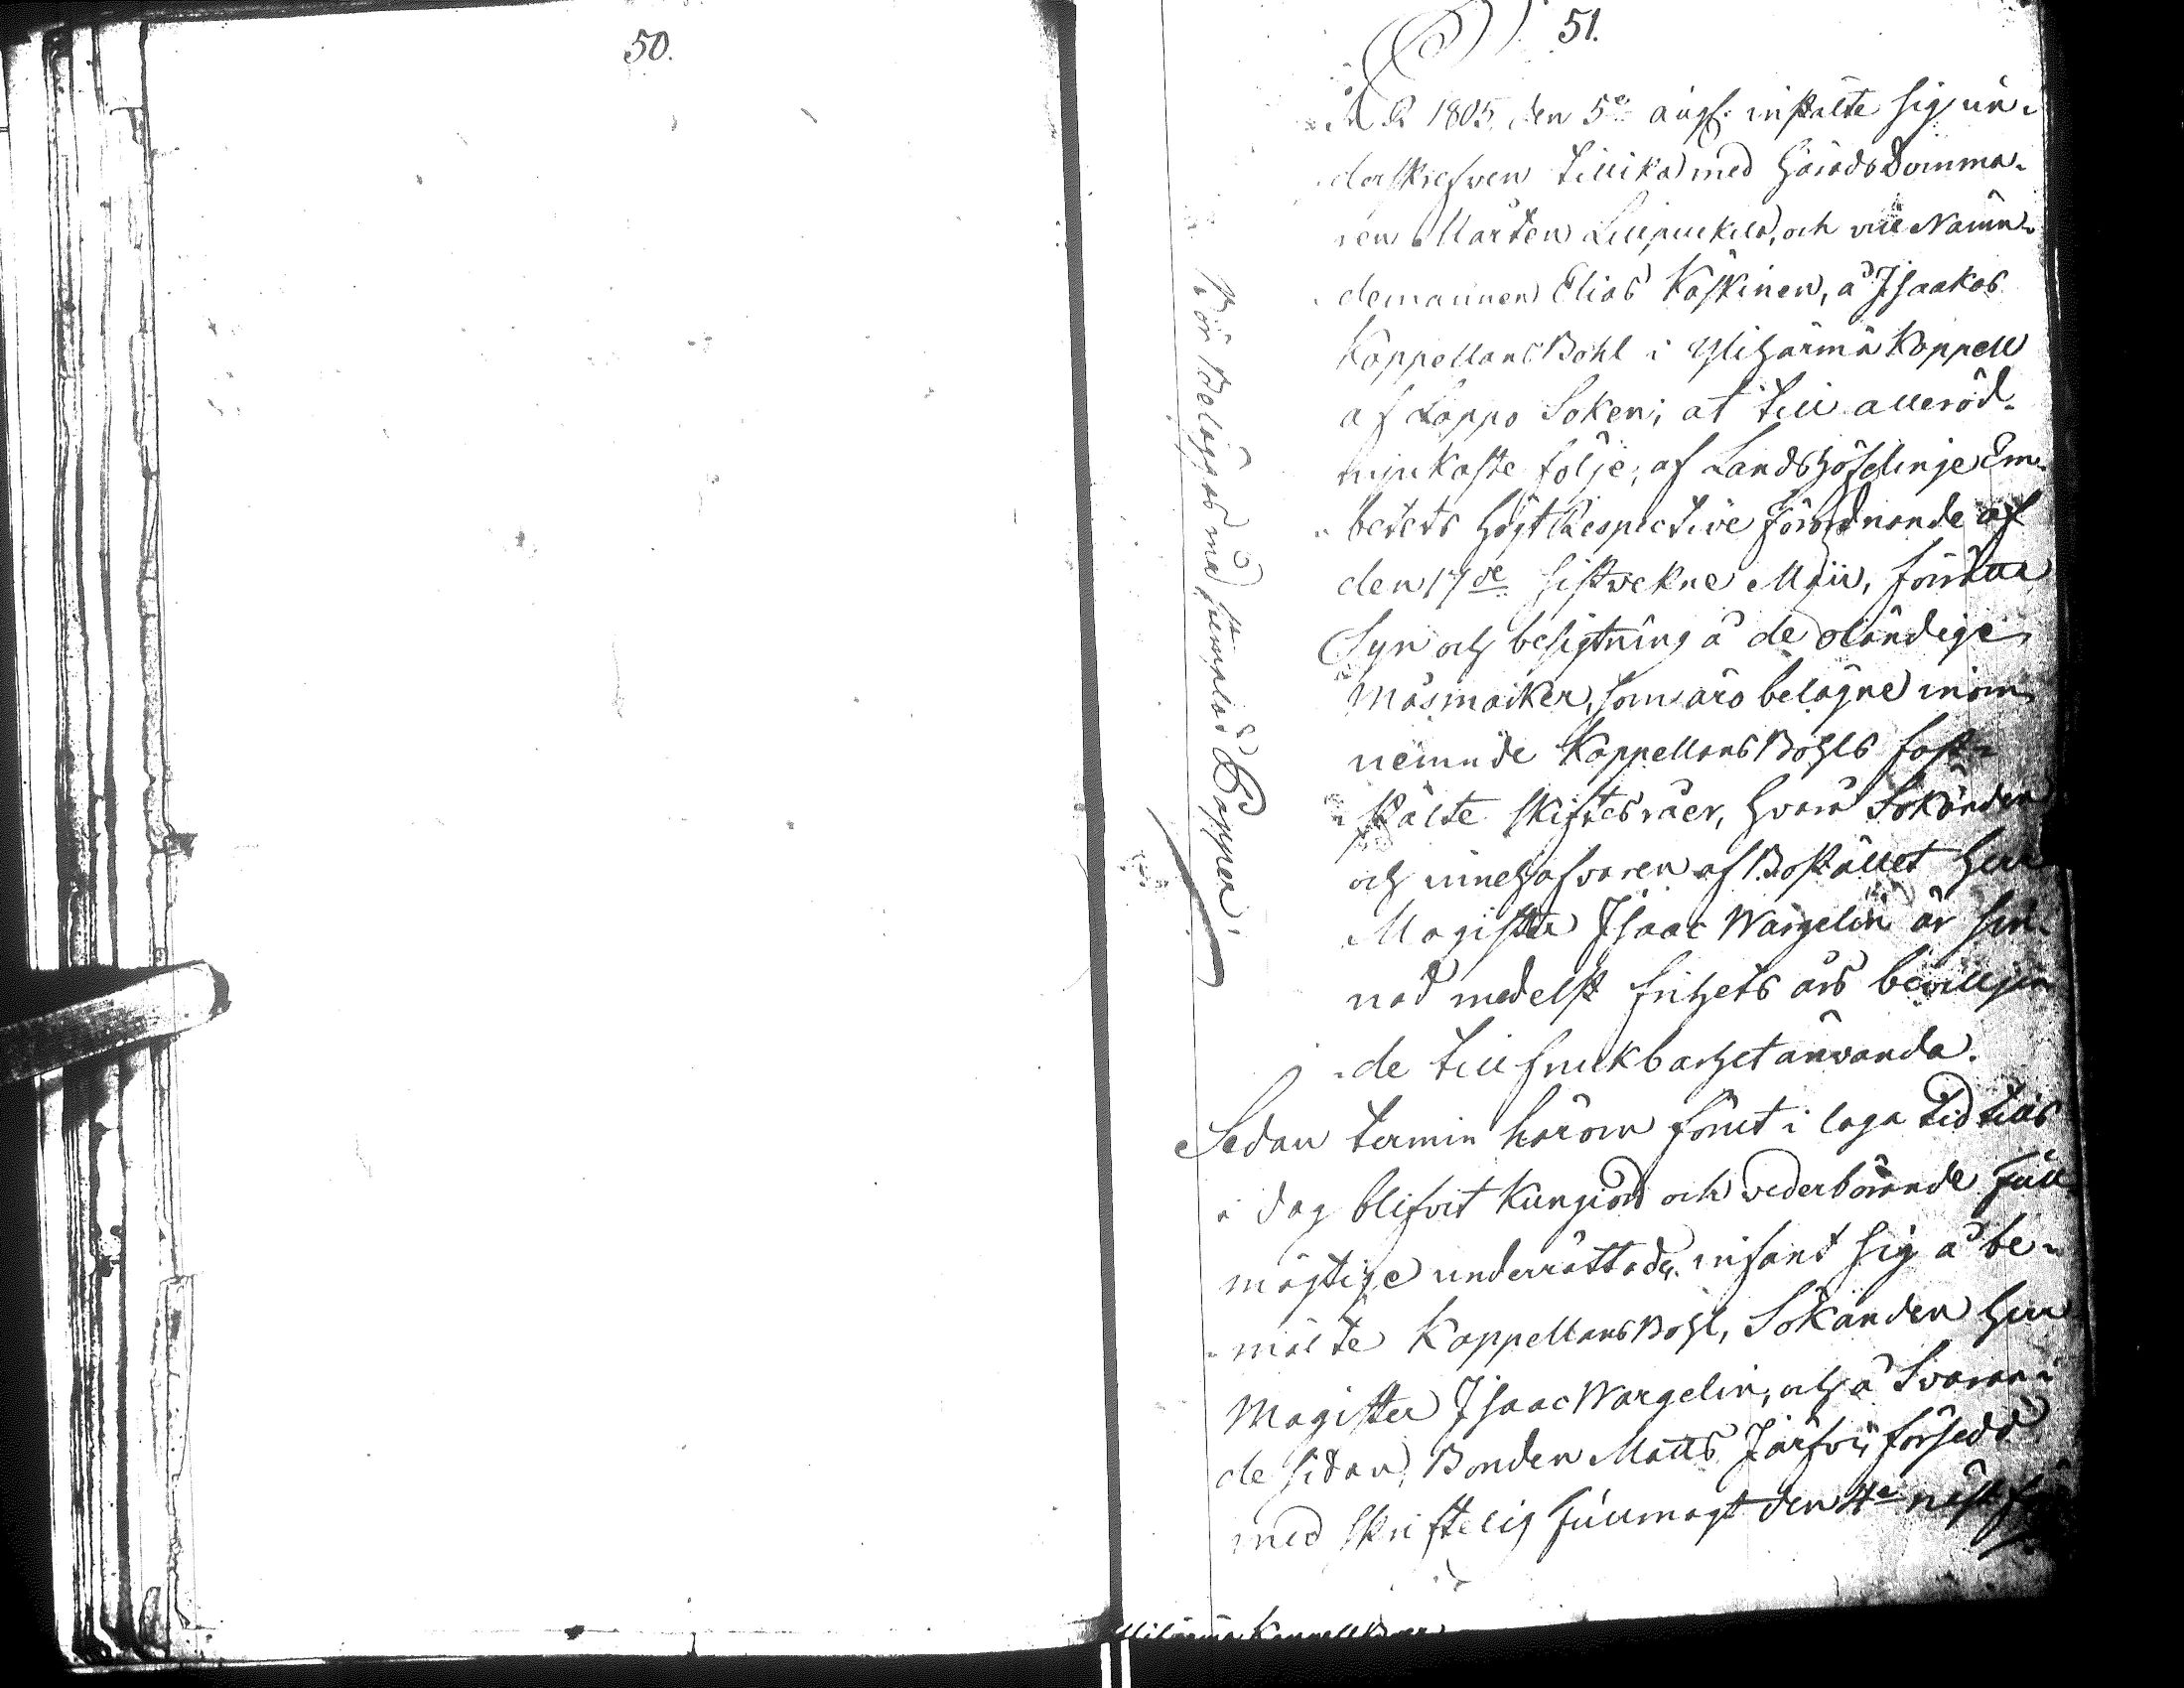 50.
51.
År 1805 den 5e augs: instälte sig un-
derskrefven tillika med Häradsdomma-
ren Mårten Lillpuckila, och vice Nämn-
demannen Elias Koskinen, å Isaakas
KappellansBohl i Ylihärmä Kappell
af Lappo Soken; at till alleröd-
mjukaste följe, af Landshöfdinge Em-
betets högt Respective förordnande af
den 17de sistvekne Maii, förrätta
Syn och besigtning å de oländige
Måsmarker, som äro belägne inom
nemnde KappellansBohls fast-
stälte skiftesråer, hvara Sökanden
och innehafvaren af Bostället Herr
Magister Isaac Wargelin är sin-
nad medelst frihets års beviljan-
de till fruktbarhet använda.
Sedan termin härom förut i laga tid tills
i dag blifvit kungjord och vederbörande full-
mägtige underrättade, infant sig å be-
mälte KappellansBohl, Sökanden Herr
Magister Isaac Wargelin, och å Svaran-
de sidan, Bonden Matts Järfvi, försedd
med skriftelig fullmagt den 4e näst
Bör beläggas med stemplad Papper
Ylihärmä Kappell